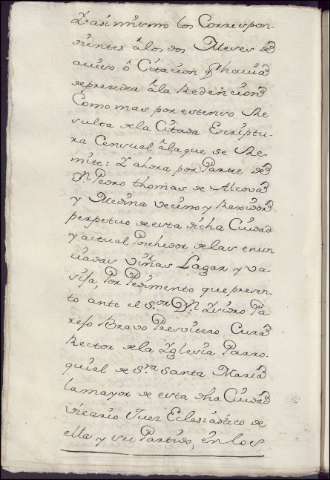 Y asi mismo los Correspon-
dientes â los dos Meses de
aviso ô Citacion q.e havia
de preceder â la Redencion
Como mas por extenso Re-
sulta de la Citada Escriptu-
ra Censual â la que se Re-
mite: Y ahora por Parte de
D.n Pedro thomas de
y Medina vecino y Rexidor
perpetuo de esta dicha Ciudad
y actual Posehedor de las enun-
ciadas viñas Lagar y va-
sija, Por Pedimento que presen-
to ante el S.or D.n Ysidro Pa-
rejo Bravo Presvitero Cura
Rector de la Yglesia Parro-
quial de S.ra Santa Maria
la mayor de esta dha Ciudad
vicario Juez Eclesiastico de
ella y su Partido, en los